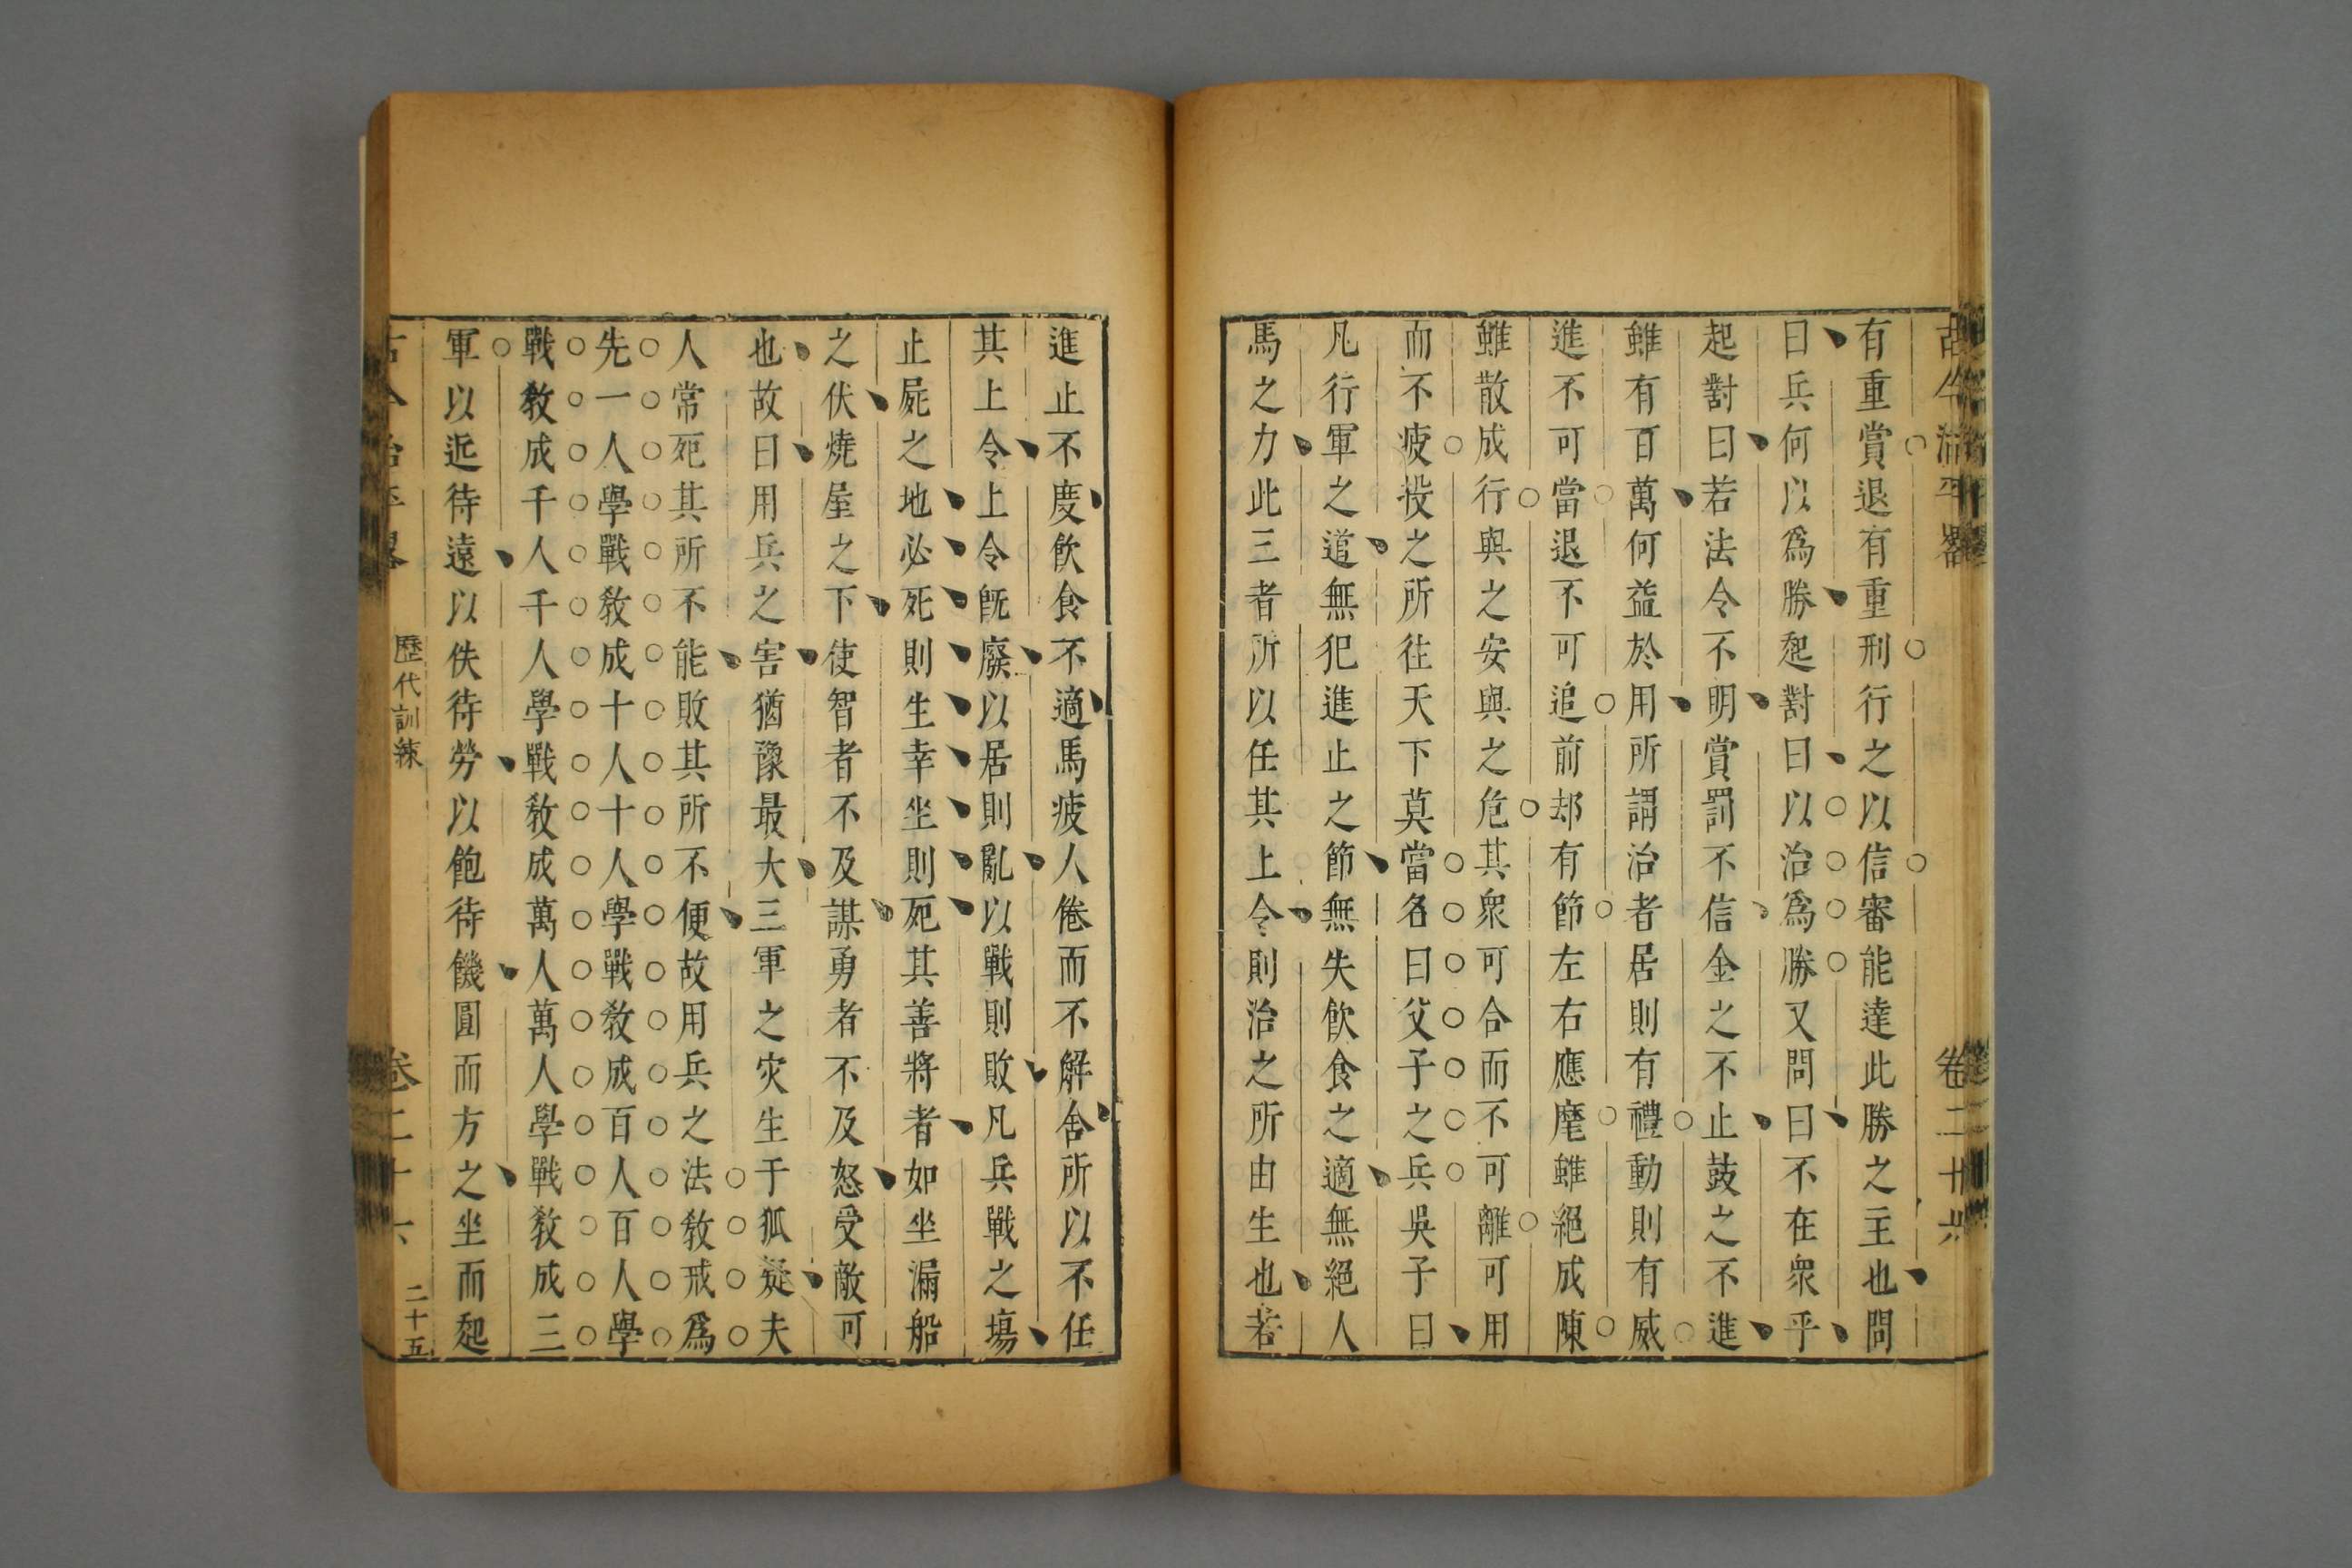 古今治平畧 卷二十六
有重賞退有重刑行之以信審能達此勝之主也問
曰兵何以爲勝起對曰以治爲勝又問曰不在衆乎
起對曰若法令不明賞罰不信金之不止鼓之不進
雖有百萬何益於用所謂治者居則有禮動則有威
進不可當退不可追前却有節左右應麾雖絕成陳
雖散成行與之安與之危其衆可合而不可離可用
而不疲投之所往天下莫當名曰父子之兵吳子曰
凡行軍之道無犯進止之節無失飲食之適無絕人
馬之力此三者所以任其上令則治之所由生也若
進止不度飲食不適馬疲人倦而不解舍所以不任
其上令上令旣廢以居則亂以戰則敗凡兵戰之塲
止屍之地必死則生幸坐則死其善將者如坐漏船
之伏燒屋之下使智者不及謀勇者不及怒受敵可
也故曰用兵之害猶豫最大三軍之灾生于狐疑夫
人常死其所不能敗其所不便故用兵之法教戒爲
先一人學戰教成十人十人學戰教成百人百人學
戰教成千人千人學戰教成萬人萬人學戰教成三
軍以近待遠以佚待勞以飽待饑圓而方之坐而起
古今治平畧 歷代訓練 卷二十六 二十五